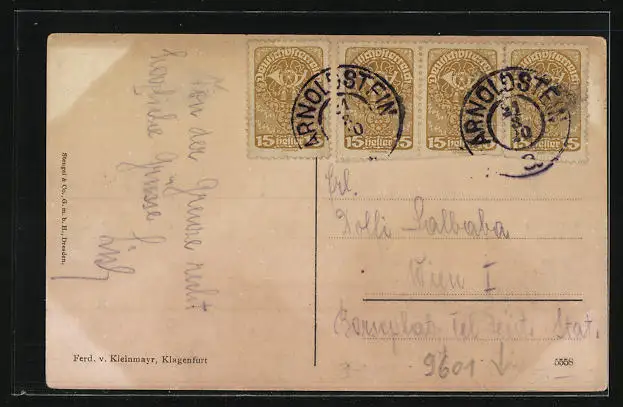 Deutschösterreich Deutschösterreich Deutschösterreich Deutschösterreich
15 heller 15 heller 15 heller 15
ARNOLDSTEIN ARNOLDSTEIN
Von der Grenze recht
herzliche Grüsse
Stengel & Co., G. m. b. H., Dresden.
Frl.
Dolfi Salbaba
Wien I
Börseplatz Tel. Stat.
9601
Ferd. v. Kleinmayr, Klagenfurt
5558